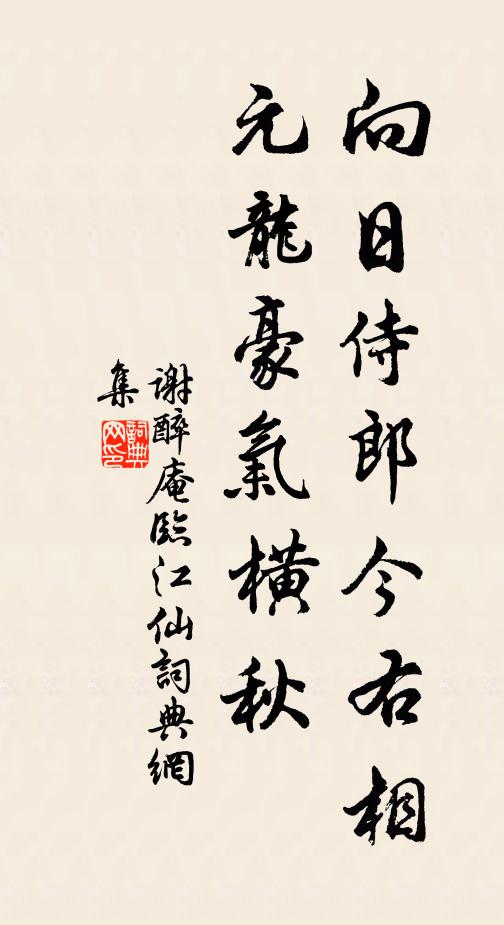 向日侍郎今右相
元龍豪氣橫秋
謝醉庵臨江仙詞典網
集
詞典网印